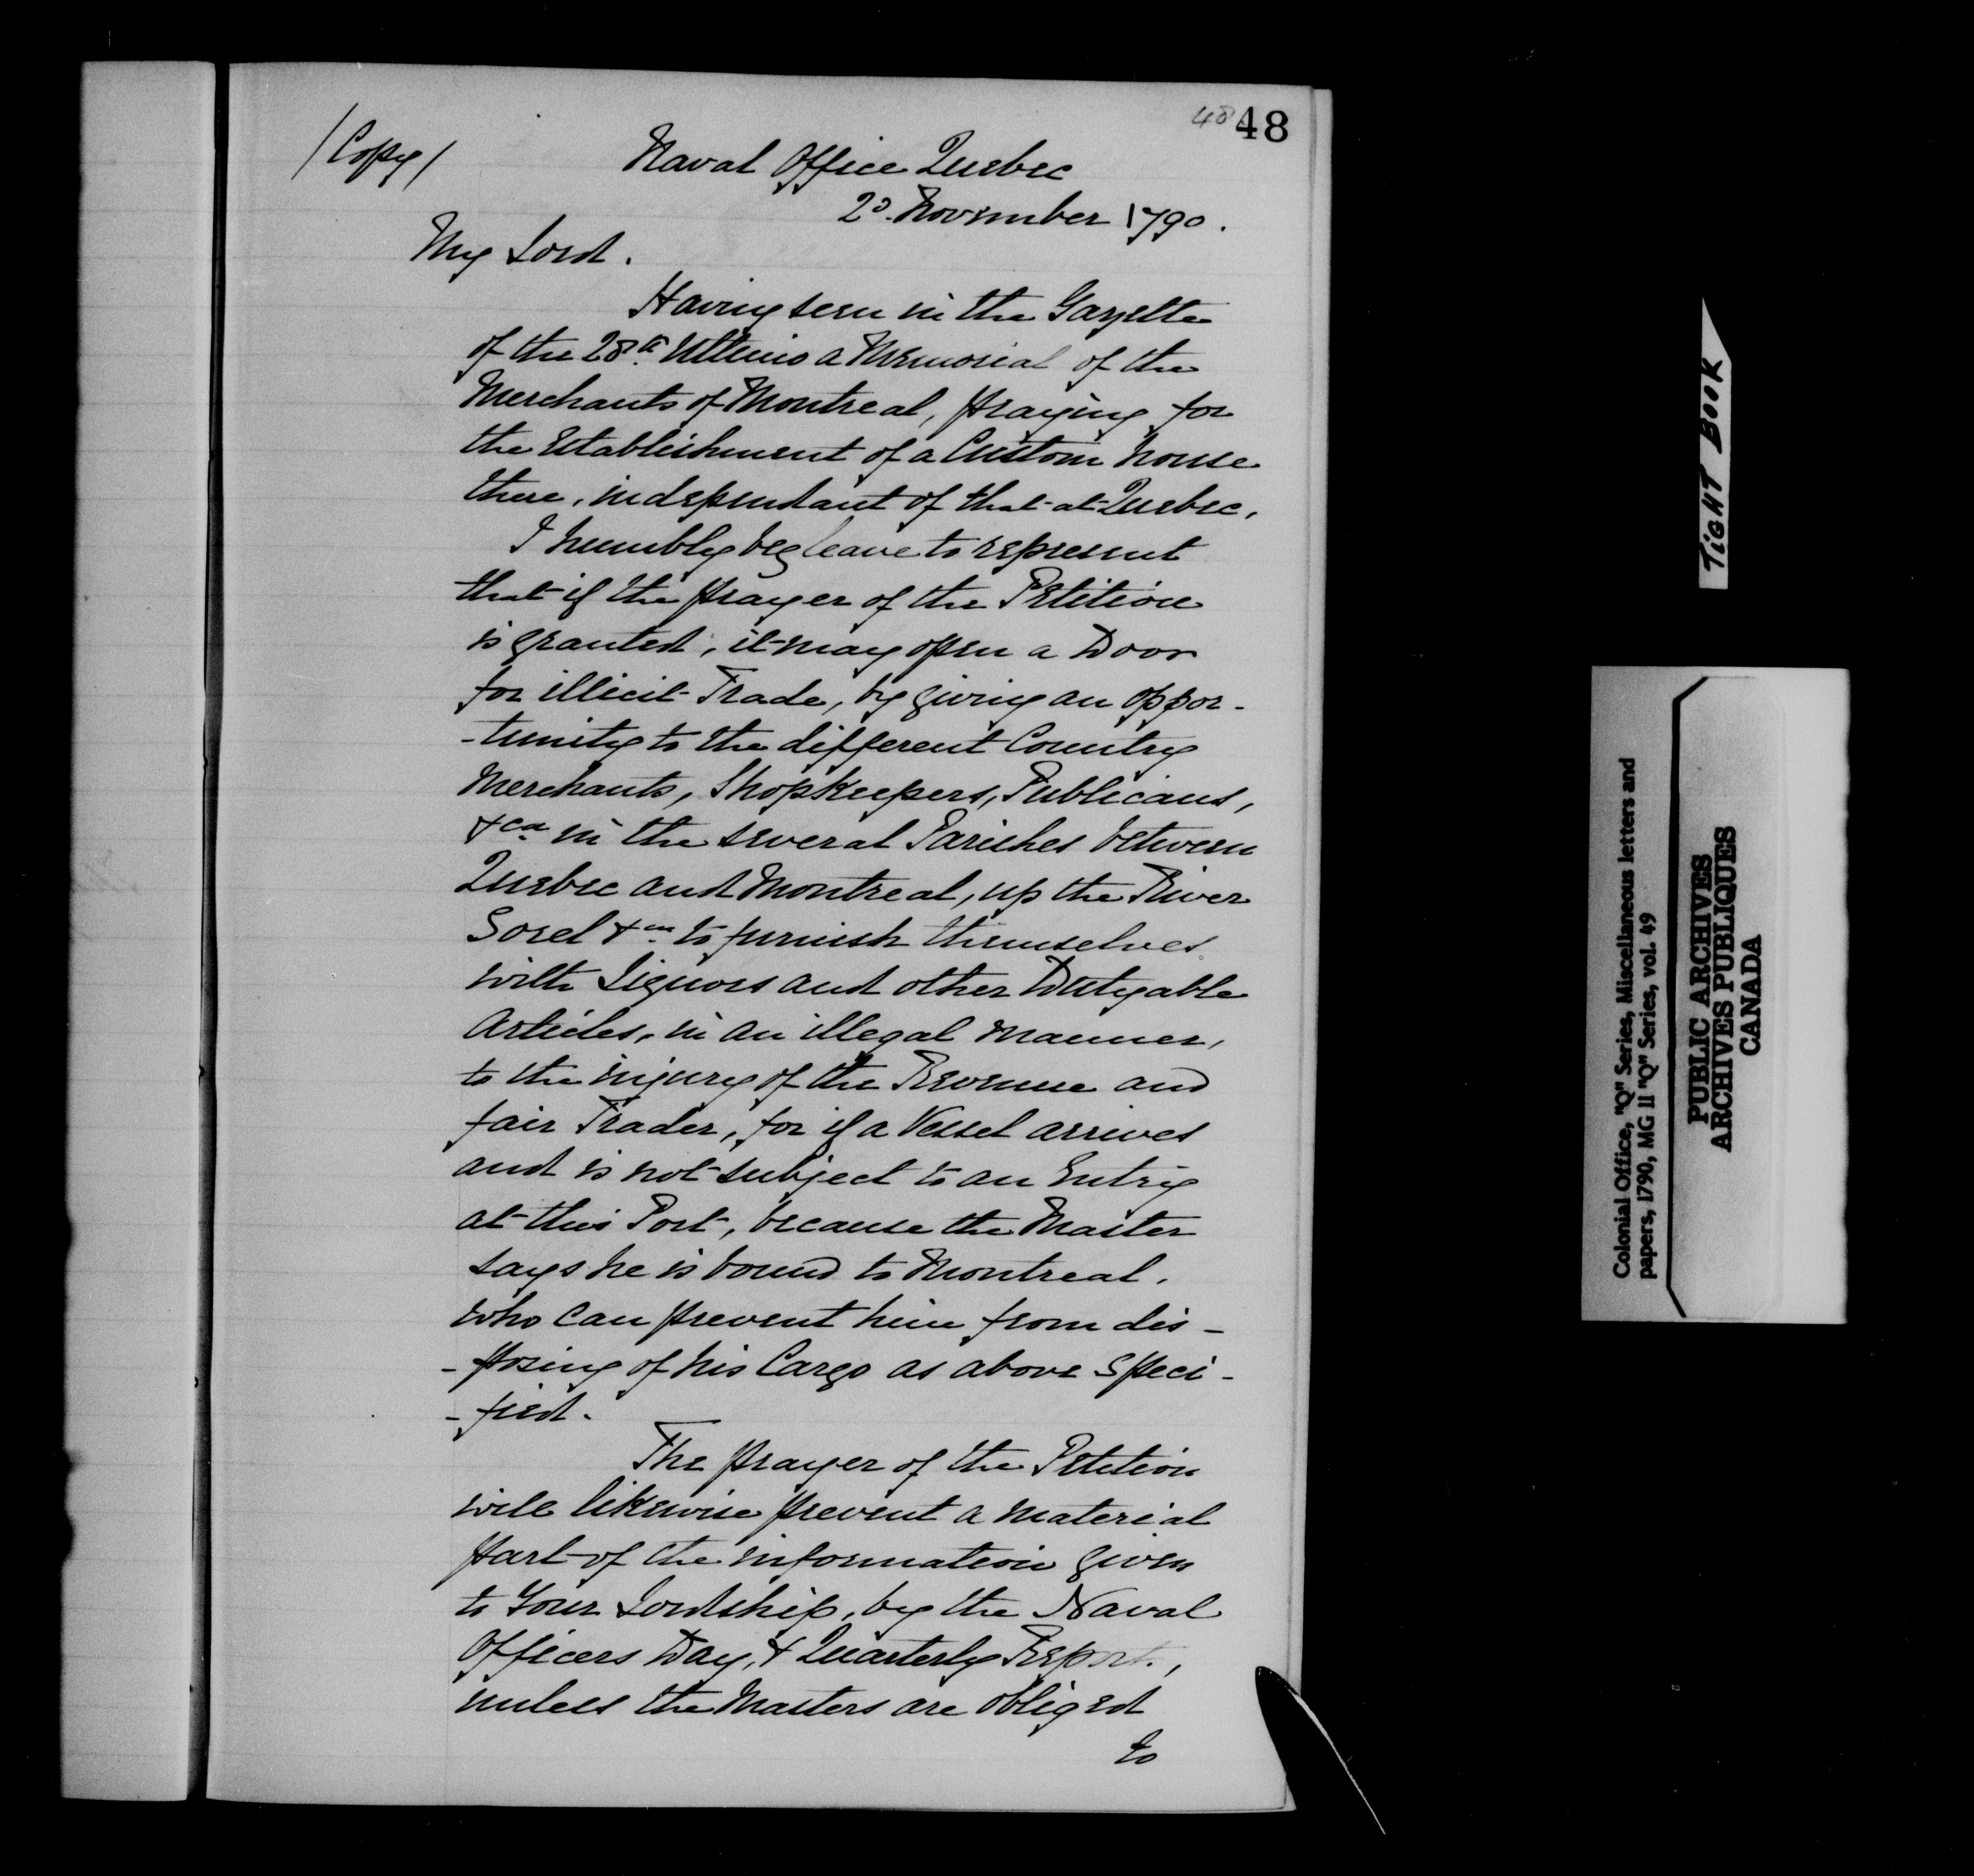 48 48
/Copy/
Naval Office Quebec
2d. November 1790.
My Lord.
Having seen in the Gazette
of the 28th. Ultimo a Memorial of the
Merchants of Montreal, praying for
the Establishment of a Custom house
there, independant of that at Quebec,
I humbly beg leave to represent
that if the prayer of the Petition
is granted, it may open a Door
for illicit Trade, by giving an oppor-
-tunity to the different Country
Merchants, Shopkeepers, Publicans,
&ca. in the several Parishes between
Quebec and Montreal, up the River
Sorel &ca. to furnish themselves
with Liquors and other Dutyable
Articles, in an illegal manner,
to the injury of the Revenue and
fair Trader, for if a Vessel arrives
and is not subject to an Entry
at this Port, because the Master
says he is bound to Montreal,
who can prevent him from dis-
-posing of his Cargo as above speci-
-fied.
The prayer of the Petition
will likewise prevent a material
part of the information given
to Your Lordship, by the Naval
Officers Day, & Quarterly Report,
unless the Masters are obliged
to
TIGHT BOOK
Colonial Office, "Q" Series, Miscellaneous letters and
papers, 1790, MG 11 "Q" Series, vol. 49
PUBLIC ARCHIVES
ARCHIVES PUBLIQUES
CANADA